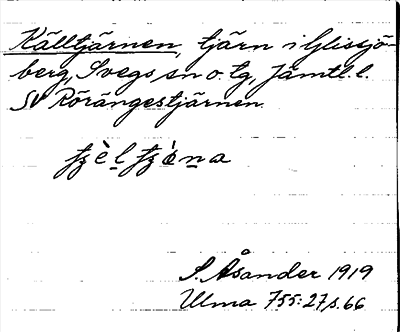 Källtjärnen, tjärn i Glissjö-
berg, Svegs sn o. tg, Jämtl. l.
SV Rörängestjärnen.
S. Åsander 1919
Ulma 755:27, s. 66